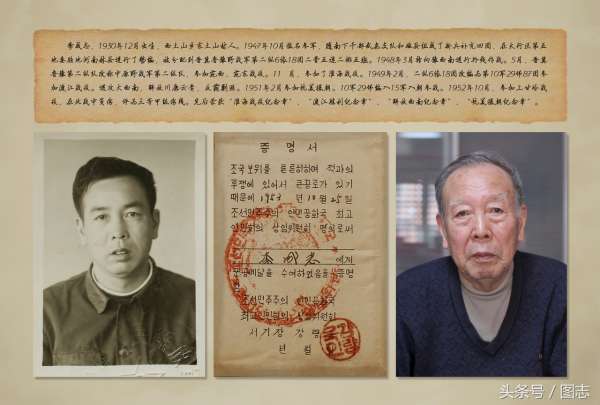 李成志，1930年12月出生，西土山乡东土山村人。1947年10月报名参军，随南下干部武装支队和磁县组成了新兵补充四团，在太行区第五
地委驻地河南林县进行了整编，被分配到晋冀鲁豫野战军第二纵6旅18团二营五连二排五班。1948年3月转向豫西南进行外线作战。5月，晋冀
鲁豫第二纵队改称中原野战军第二纵队，参加宛西、宛东战役。11 月，参加了淮海战役。1949年2月，二纵6旅18团改编为第10军29师87团参
加渡江战役，进攻大西南，解放川康云贵，反霸剿匪。1951年2月参加抗美援朝。10军29师编入15军入朝参战。1952年10月，参加上甘岭战
役，在此战中负伤，评为三等甲级伤残。先后荣获“淮海战役纪念章”、“渡江胜利纪念章”、“解放西南纪念章”、“抗美援朝纪念章”。
증명서
조국보위를 튼튼히하며 적과의
투쟁에 있어서 큰공로가 있기
때문에 1953년 10월 25일
조선민주주의 인민공화국 최고
인민회의 상임위원회 명의로써
李成志 에게
군공메달을 수여하였음을 증명
조선민주주의 인민공화국
최고인민회의 상임위원회
서기장 강량
년 월
头条号／图志